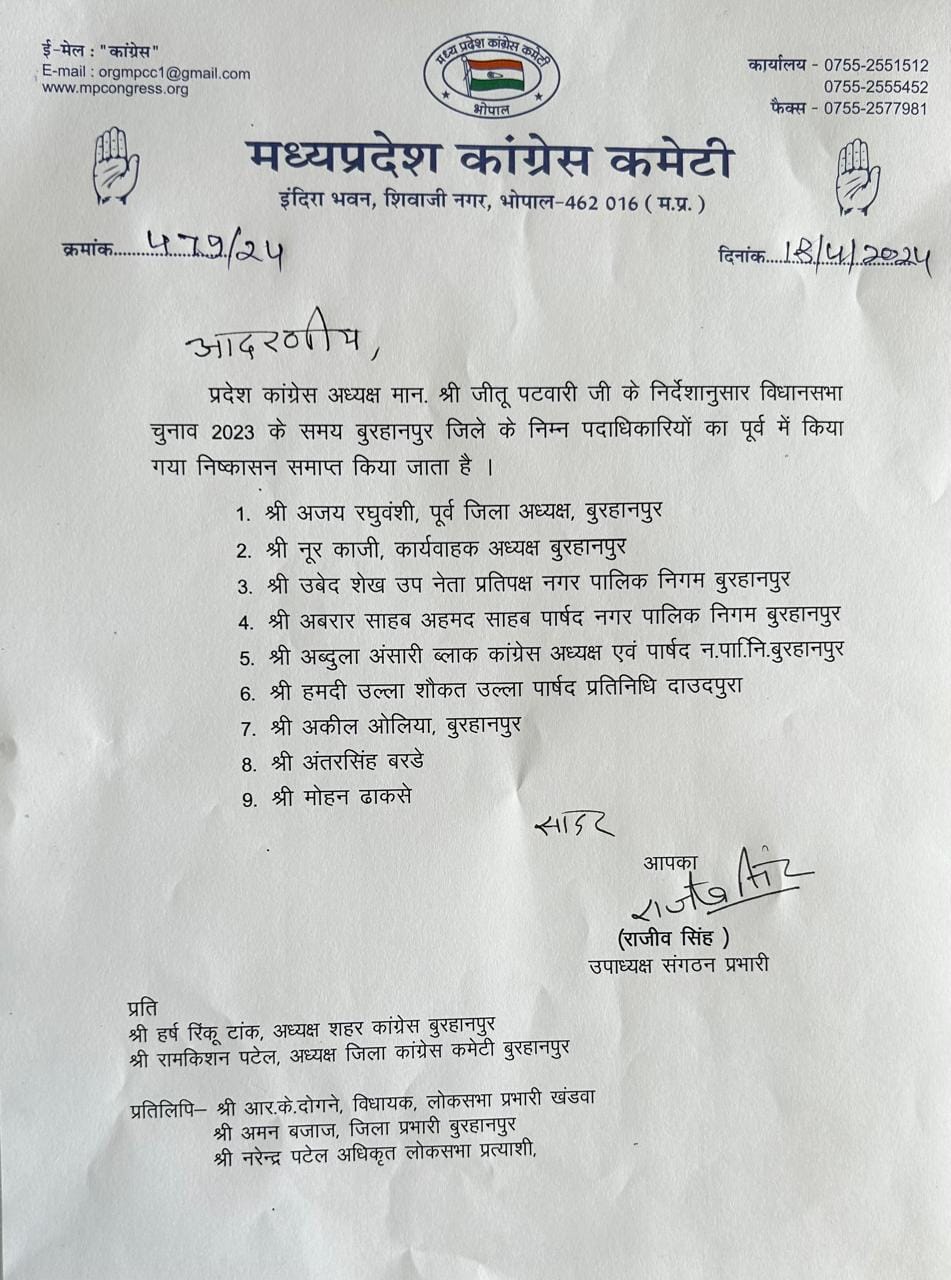 ई-मेल : "कांग्रेस"
E-mail : orgmpcc1@gmail.com
www.mpcongress.org
मध्य प्रदेश कांग्रेस कमेटी
भोपाल
कार्यालय - 0755-2551512
0755-2555452
फैक्स - 0755-2577981
मध्यप्रदेश कांग्रेस कमेटी
इंदिरा भवन, शिवाजी नगर, भोपाल-462 016 ( म.प्र. )
क्रमांक....479/24
दिनांक....18/4/2024
आदरणीय,
प्रदेश कांग्रेस अध्यक्ष मान. श्री जीतू पटवारी जी के निर्देशानुसार विधानसभा
चुनाव 2023 के समय बुरहानपुर जिले के निम्न पदाधिकारियों का पूर्व में किया
गया निष्कासन समाप्त किया जाता है ।
1. श्री अजय रघुवंशी, पूर्व जिला अध्यक्ष, बुरहानपुर
2. श्री नूर काजी, कार्यवाहक अध्यक्ष बुरहानपुर
3. श्री उबेद शेख उप नेता प्रतिपक्ष नगर पालिक निगम बुरहानपुर
4. श्री अबरार साहब अहमद साहब पार्षद नगर पालिक निगम बुरहानपुर
5. श्री अब्दुला अंसारी ब्लाक कांग्रेस अध्यक्ष एवं पार्षद न.पा.नि.बुरहानपुर
6. श्री हमदी उल्ला शौकत उल्ला पार्षद प्रतिनिधि दाउदपुरा
7. श्री अकील ओलिया, बुरहानपुर
8. श्री अंतरसिंह बरडे
9. श्री मोहन ढाकसे
सादर
आपका
(राजीव सिंह )
उपाध्यक्ष संगठन प्रभारी
प्रति
श्री हर्ष रिंकू टांक, अध्यक्ष शहर कांग्रेस बुरहानपुर
श्री रामकिशन पटेल, अध्यक्ष जिला कांग्रेस कमेटी बुरहानपुर
प्रतिलिपि– श्री आर.के.दोगने, विधायक, लोकसभा प्रभारी खंडवा
श्री अमन बजाज, जिला प्रभारी बुरहानपुर
श्री नरेन्द्र पटेल अधिकृत लोकसभा प्रत्याशी,